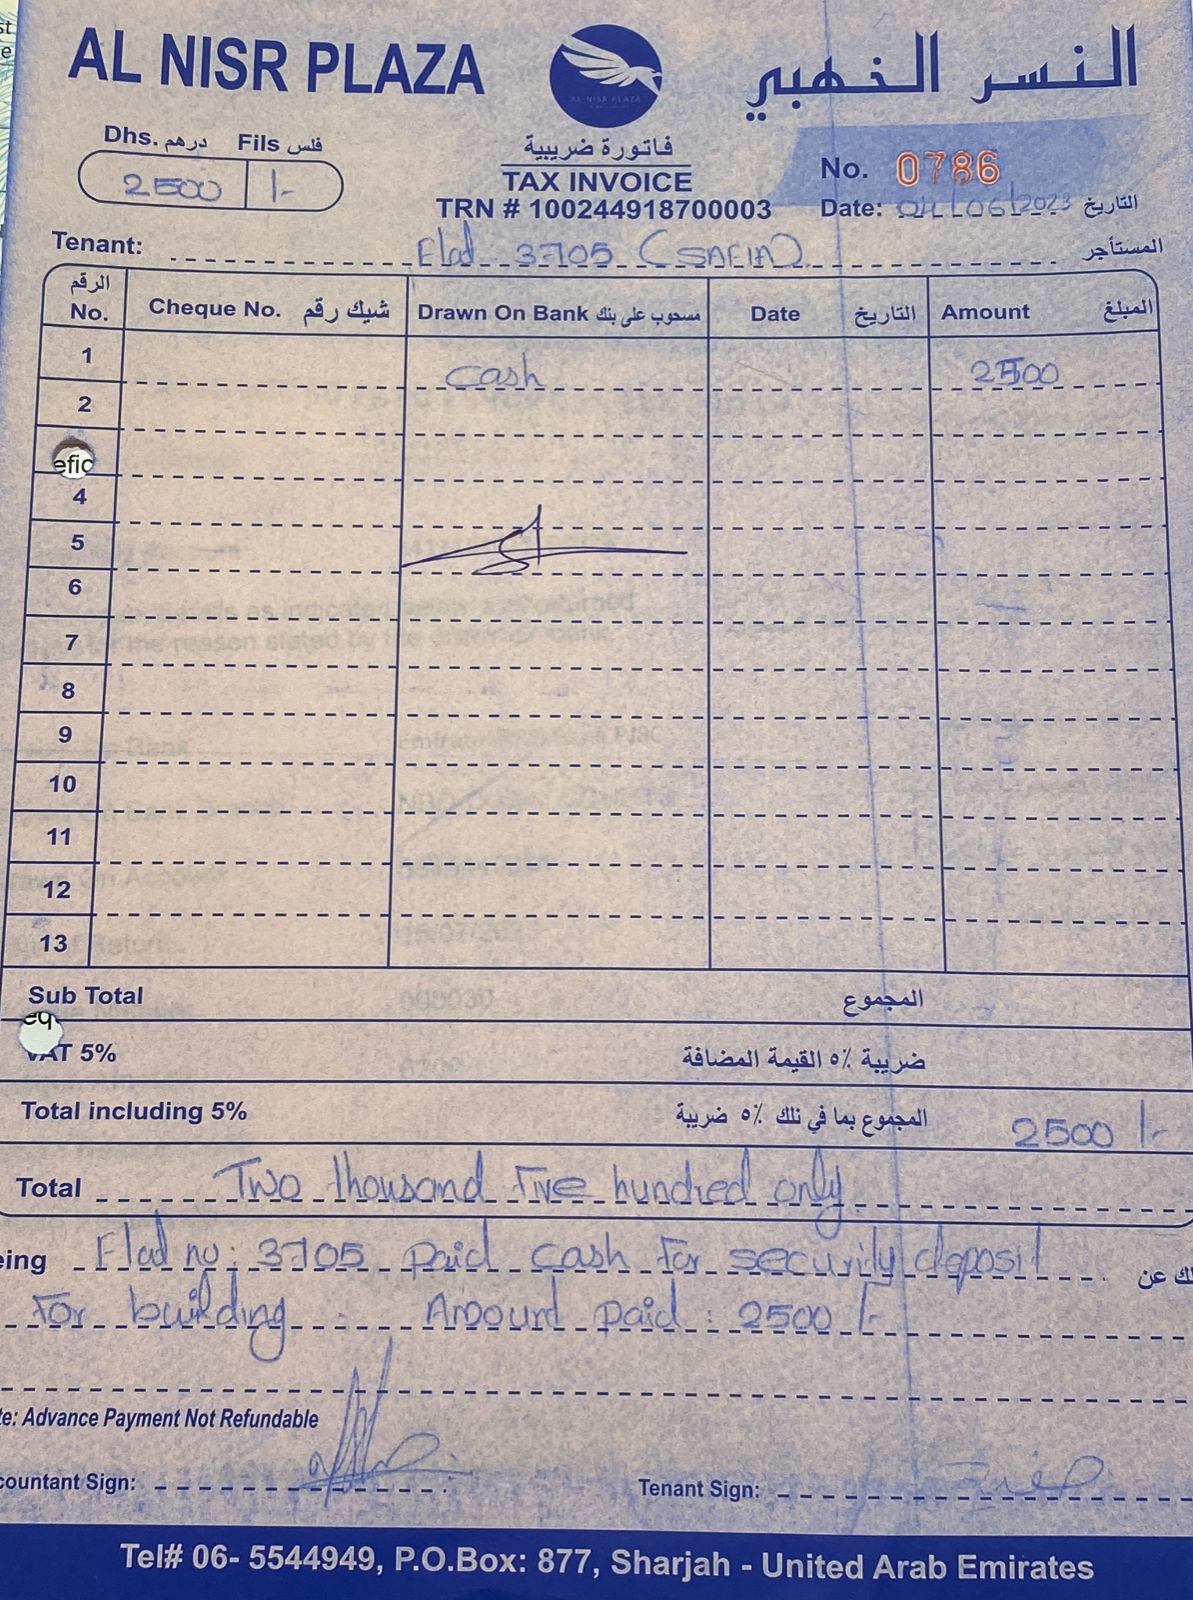 AL NISR PLAZA
AL NISR PLAZA
النسر الخهبي
Dhs. درهم Fils فلس
2500 /-
فاتورة ضريبية
TAX INVOICE
TRN # 100244918700003
No. 0786
Date: 06/2023 التاريخ
Tenant: Flat 3705 (SAFIA) المستأجر
الرقم No. Cheque No. شيك رقم Drawn On Bank مسحوب على بنك Date التاريخ Amount المبلغ
1 cash 2500
2
efic
4
5
6
7
8
9
10
11
12
13
Sub Total المجموع
eq
VAT 5% ضريبة ٥٪ القيمة المضافة
Total including 5% المجموع بما في نلك ٥٪ ضريبة 2500 /-
Total Two thousand Five hundred only
eing Flat no: 3705 paid cash for security deposit لك عن
For building. Amount paid: 2500 /-
te: Advance Payment Not Refundable
countant Sign:
Tenant Sign:
Tel# 06- 5544949, P.O.Box: 877, Sharjah - United Arab Emirates